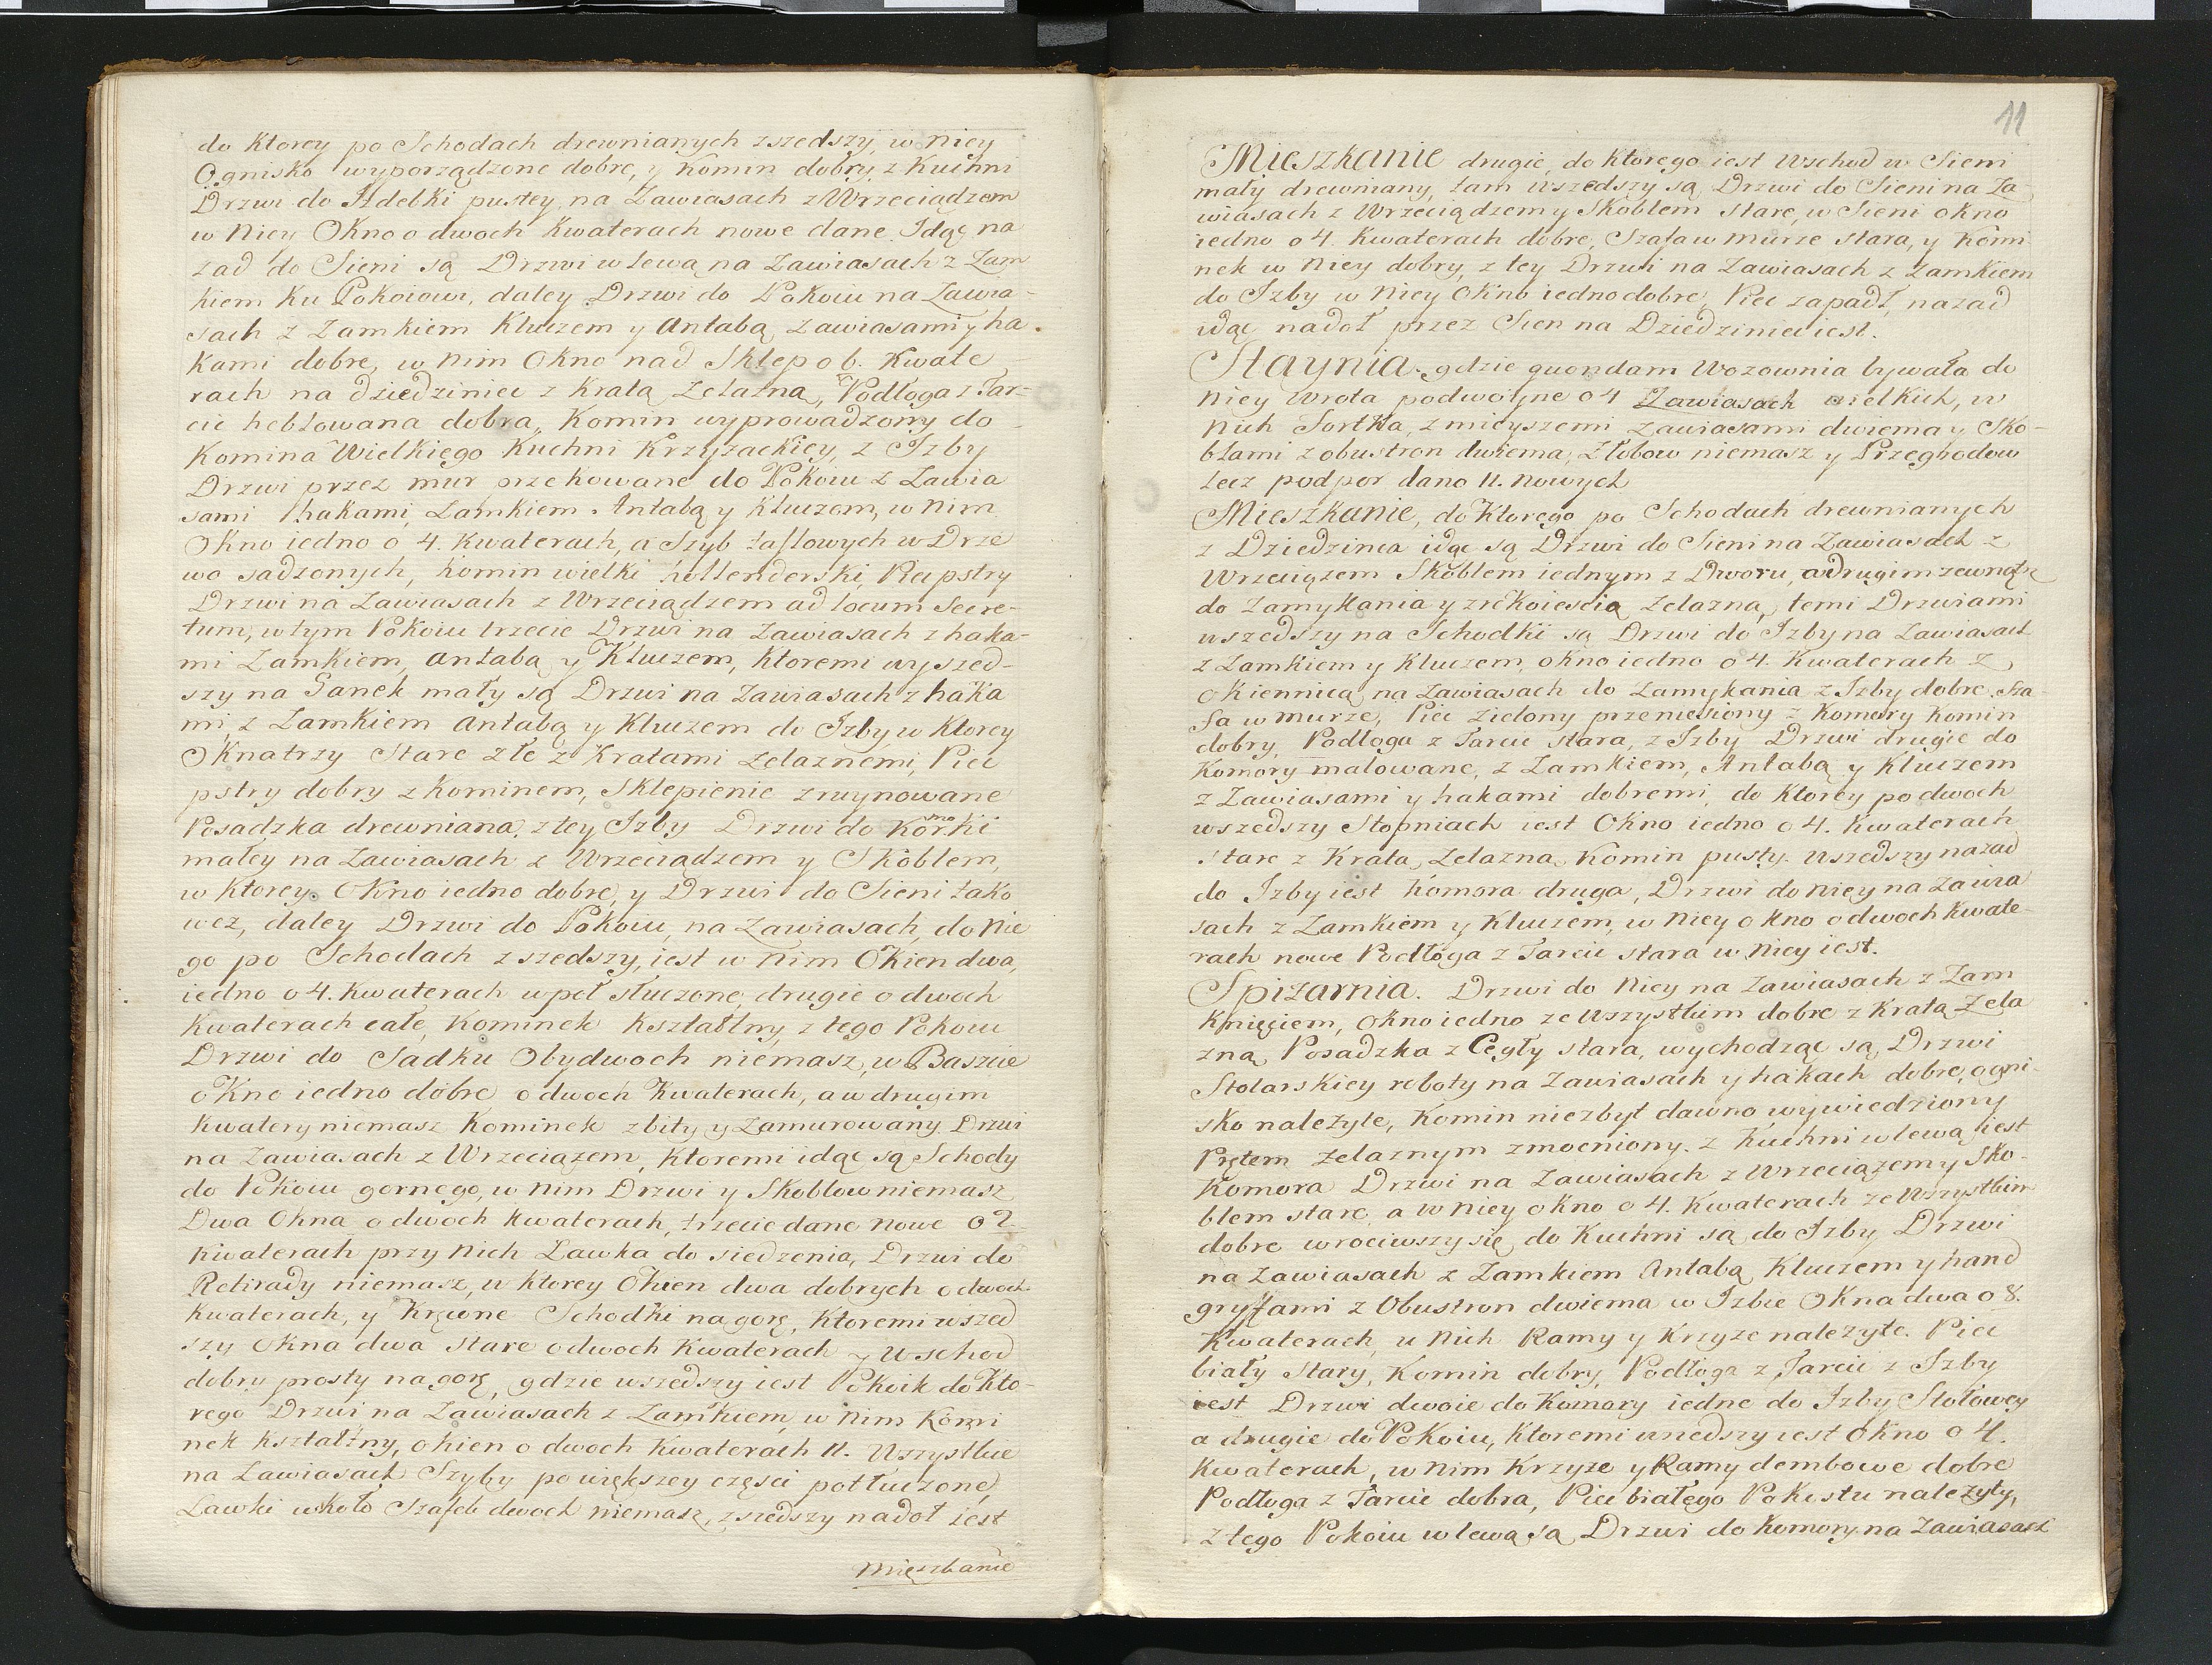 do Ktorey po Schodach drewnianych zszedszy, w niey
Ognisko wyporządzone dobre, y Komin dobry, z Kuchni
Drzwi do Izdebki pustey na Zawiasach z Wrzeciądzem
w Niey Okno o dwoch Kwaterach nowe dane. Idąc na
zad do Sieni są Drzwi w lewą na Zawiasach z Zam
kiem Ku Pokoiowi, daley Drzwi do Pokoiu na Zawia-
sach z Zamkiem Kluczem y Antabą, Zawiasami y ha
kami dobre, w Nim Okno nad Sklep o 6. Kwate
rach na dziedziniec z Kratą Zelazną, Podłoga z Tar-
cic heblowana dobra, Komin wyprowadzony do
Komina Wielkiego Kuchni Krzyzackiey, z Izby
Drzwi przez mur przekowane do Pokoiu z Zawia
sami hakami, Zamkiem Antabą y Kluczem, w Nim
Okno iedno o 4. Kwaterach, a Szyb taflowych w Drze
wo sadzonych, komin wielki hollenderski, Piec pstry
Drzwi na Zawiasach z Wrzeciądzem ad locum Secre-
tum, w tym Pokoiu trzecie Drzwi na Zawiasach z haka-
mi Zamkiem, Antabą y Kluczem, Ktoremi wyszed-
szy na Ganek mały są Drzwi na Zawiasach z haka
mi, z Zamkiem Antabą y Kluczem do Izby w Ktorey
Okna trzy Stare złe z Kratami Zelaznemi, Piec
pstry dobry z Kominem, Sklepienie zruynowane
Posadzka drewniana, z tey Izby Drzwi do Komorki
małey na Zawiasach z Wrzeciądzem y Skoblem,
w Ktorey Okno iedno dobre, y Drzwi do Sieni tako
wez, daley Drzwi do Pokoiu, na Zawiasach, do Nie
go po Schodach zszedszy, iest w Nim Okien dwa,
iedno o 4. Kwaterach w poł stuczone, drugie o dwoch
Kwaterach całe, Kominek Kształtny, z tego Pokoiu
Drzwi do Sadku Obydwoch niemasz, w Baszcie
Okno iedno dobre o dwoch Kwaterach, a w drugim
Kwatery niemasz Kominek zbity y Zamurowany Drzwi
na Zawiasach z Wrzeciązem, Ktoremi idąc są Schody
do Pokoiu gornego, w Nim Drzwi y Skoblow niemasz
Dwa Okna o dwoch Kwaterach, trzecie dane Nowe o 2
Kwaterach przy Nich Ławka do siedzenia, Drzwi do
Retirady niemasz, w Ktorey Okien dwa dobrych o dwoch
Kwaterach, y Kręcone Schodki na gorę, Ktoremi wszed
szy Okna dwa stare o dwoch Kwaterach y Wschod
dobry prosty na gorę, gdzie wszedszy iest Pokoik do Kto-
rego Drzwi na Zawiasach z Zamkiem, w Nim Komi
nek Kształtny, okien o dwoch Kwaterach 11. Wszystkie
na Zawiasach Szyby po większey części potłuczone,
Ławki wkoło Szafek dwoch niemasz, zszedszy nadoł iest
Mięszkanie
11
Mieszkanie drugie, do Ktorego iest Wschod w Sieni
mały drewniany, tam wszedszy są Drzwi do Sieni na Za-
wiasach z Wrzeciądzem y Skoblem stare, w Sieni okno
iedno o 4. Kwaterach dobre, Szafa w murze stara, y Komi
nek w Niey dobry, z tey Drzwi na Zawiasach z Zamkiem
do Izby w Niey Okno iedno dobre, Piec zapadł, nazad
idąc nadoł przez Sien na Dziedziniec iest.
Staynia gdzie quondam Wozownia bywała do
Niey Wrota podwoyne o 4 Zawiasach wielkich, w
Nich Fortka, z mieyszemi Zawiasami dwiema y Sko-
blami z obustron dwiema, Złobow niemasz y Przegrodow
lecz podpor dano 11. Nowych
Mieszkanie, do Ktorego po Schodach drewnianych
z Dziedzinca idąc są Drzwi do Sieni na Zawiasach z
Wrzeciązem Skoblem iednym z Dworu, a drugim zewnątrz
do Zamykania y z rękoieścią Zelazną, temi Drzwiami
wszedszy na Schodki są Drzwi do Izby na Zawiasach
z Zamkiem y Kluczem, okno iedno o 4. Kwaterach z
Okiennicą na Zawiasach do Zamykania z Izby dobre. Sza
fa w murze, Piec Zielony przeniesiony z Komory Komin
dobry, Podłoga z Tarcic stara, z Izby Drzwi drugie do
Komory malowane, z Zamkiem, Antabą y Kluczem
z Zawiasami y hakami dobremi, do Ktorey po dwoch
wszedszy Stopniach iest Okno iedno o 4. Kwaterach
stare z Kratą Zelazną, Komin pusty. Wszedszy nazad
do Izby iest Komora druga, Drzwi do Niey na Zawia
sach z Zamkiem y Kluczem, w Niey okno o dwoch Kwate-
rach nowe Podłoga z Tarcic stara w Niey iest.
Spizarnia. Drzwi do Niey na Zawiasach z Zam
Knięciem, Okno iedno ze Wszystkim dobre z Kratą Zela
zną, Posadzka z Cegły stara, wychodząc są, Drzwi
Stolarskiey roboty na Zawiasach y hakach dobre, ogni-
sko nalezyte, Komin niezbyt dawno wywiedziony
Prętem Zelaznym zmocniony. z Kuchni w lewą iest
Komora Drzwi na Zawiasach z Wrzeciązem y Sko-
blem stare, a w Niey okno o 4. Kwaterach ze Wszystkim
dobre wrociwszy się do Kuchni są do Izby Drzwi
na Zawiasach z Zamkiem Antabą Kluczem y hand
gryffami z Obustron dwiema w Izbie Okna dwa o 8.
Kwaterach, u Nich Ramy y Krzyze nalezyte. Piec
biały Stary, Komin dobry, Podłoga z Tarcic z Izby
iest Drzwi dwoie do Komory iedne do Izby Stołowey
a drugie do Pokoiu, Ktoremi wszedszy iest Okno o 4.
Kwaterach, w Nim Krzyze y Ramy dembowe dobre
Podłoga z Tarcic dobra, Piec białego Pokostu nalezyty,
z tego Pokoiu w lewą są Drzwi do Komory na Zawiasach